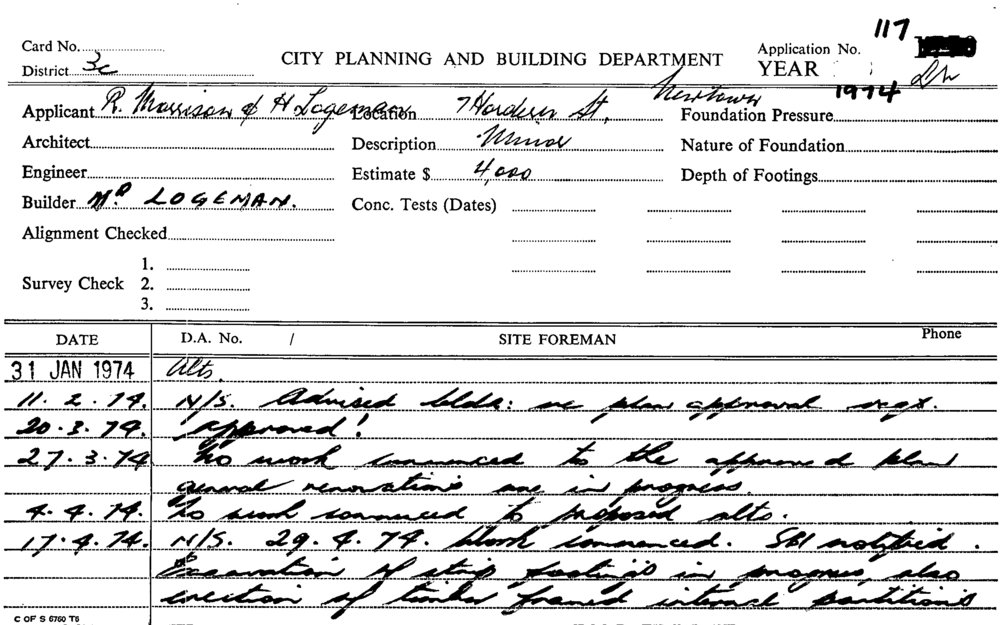 117
Card No.
District 3c
CITY PLANNING AND BUILDING DEPARTMENT
Application No.
YEAR 1974
Applicant R. Morrison & H Logeman
Location 7 Hordern St, Newtown
Foundation Pressure
Architect
Description Minor
Nature of Foundation
Engineer
Estimate $ 4,000
Depth of Footings
Builder Mr LOGEMAN.
Conc. Tests (Dates)
Alignment Checked
1.
Survey Check 2.
3.
DATE D.A. No. / SITE FOREMAN Phone
31 JAN 1974 Alts.
11. 2. 74. N/S. Advised bldr: re plan approval reqt.
20. 3. 74. approved!
27. 3. 74 No work commenced to the approved plan
general renovations are in progress.
4. 4. 74. No work commenced to proposed alts.
17. 4. 74. N/S. 29. 4. 74. Work commenced. notified.
Excavation of strip footings in progress, also
erection of timber framed internal partitions
C OF S 6760 T6